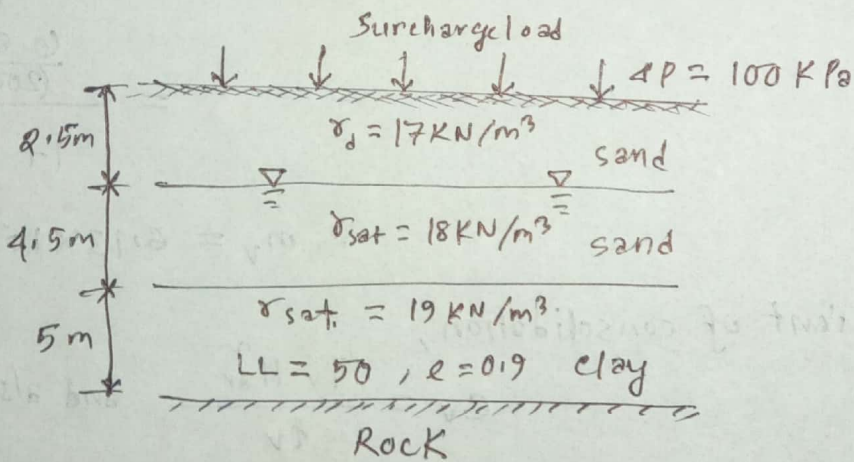 Surcharge load
ΔP = 100 KPa
2.5m
γd = 17KN/m³
sand
4.5m
γsat = 18KN/m³
sand
5m
γsat. = 19 KN/m³
LL = 50 , e = 0.9 clay
Rock